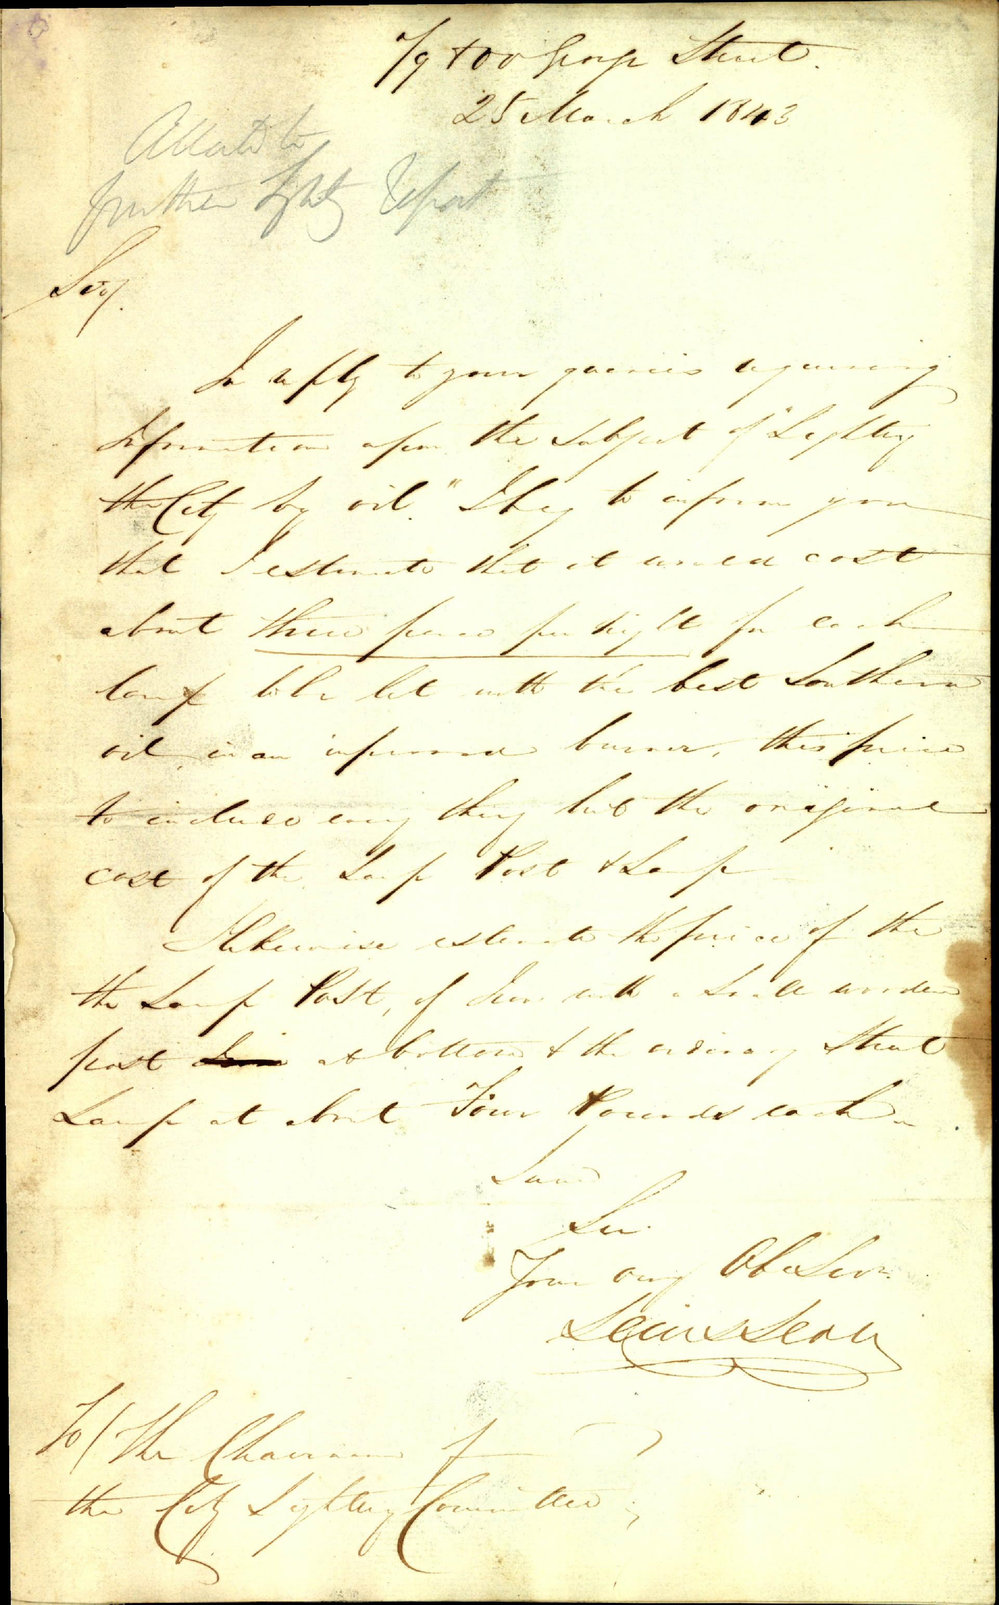 George Street.
25 March 1843
further Lighting Report
Sir,
In reply to your queries requiring
Information upon the subject of "Lighting
the City by oil." I beg to inform you
that I estimate that it would cost
about three pence per night for each
lamp to be lit with the best Southern
oil, in an improved burner, this price
to include every thing but the original
cost of the Lamp Post & Lamp
I likewise estimate the price of the
the Lamp Post, of Iron with a small wooden
post at bottom & the ordinary Street
Lamp at about Four Pounds each
Sir
Your Obt Servt.
To/ The Chairman of
the City Lighting Committee